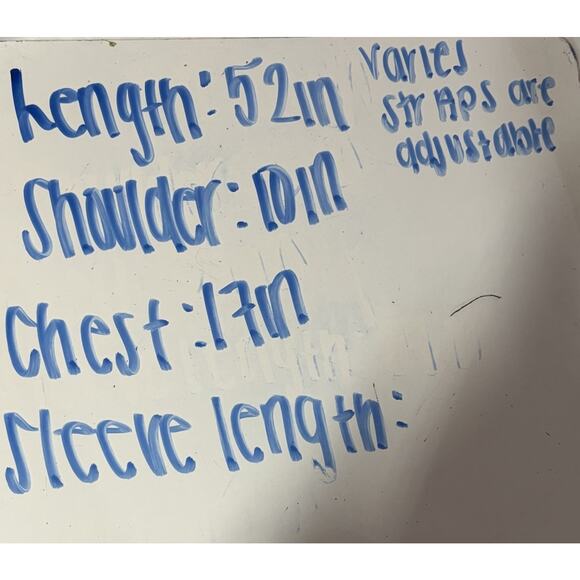 Length: 52in
varies
strAps are
adjustable
Shoulder: 10in
Chest: 17in
Sleeve length: